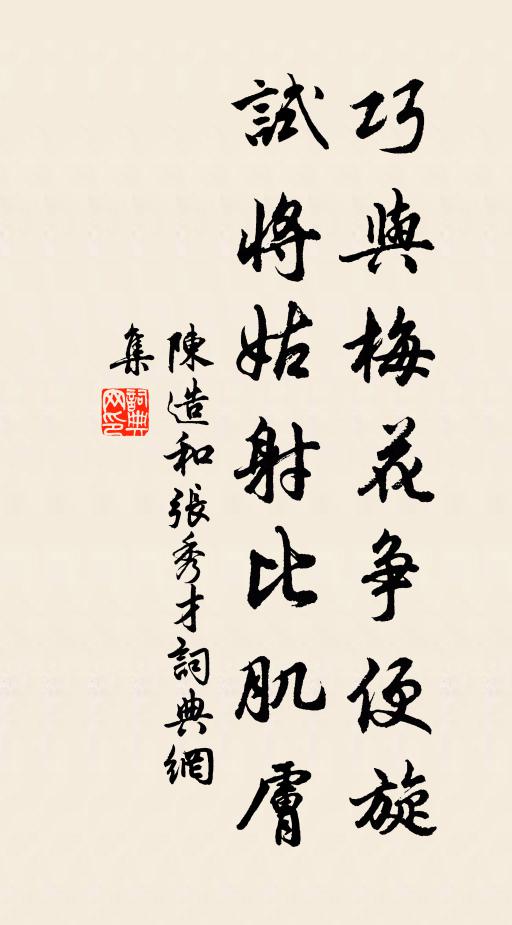 巧與梅花争便旋
試將姑射比肌膚
陳造和張秀才詞典網
集
詞典网印